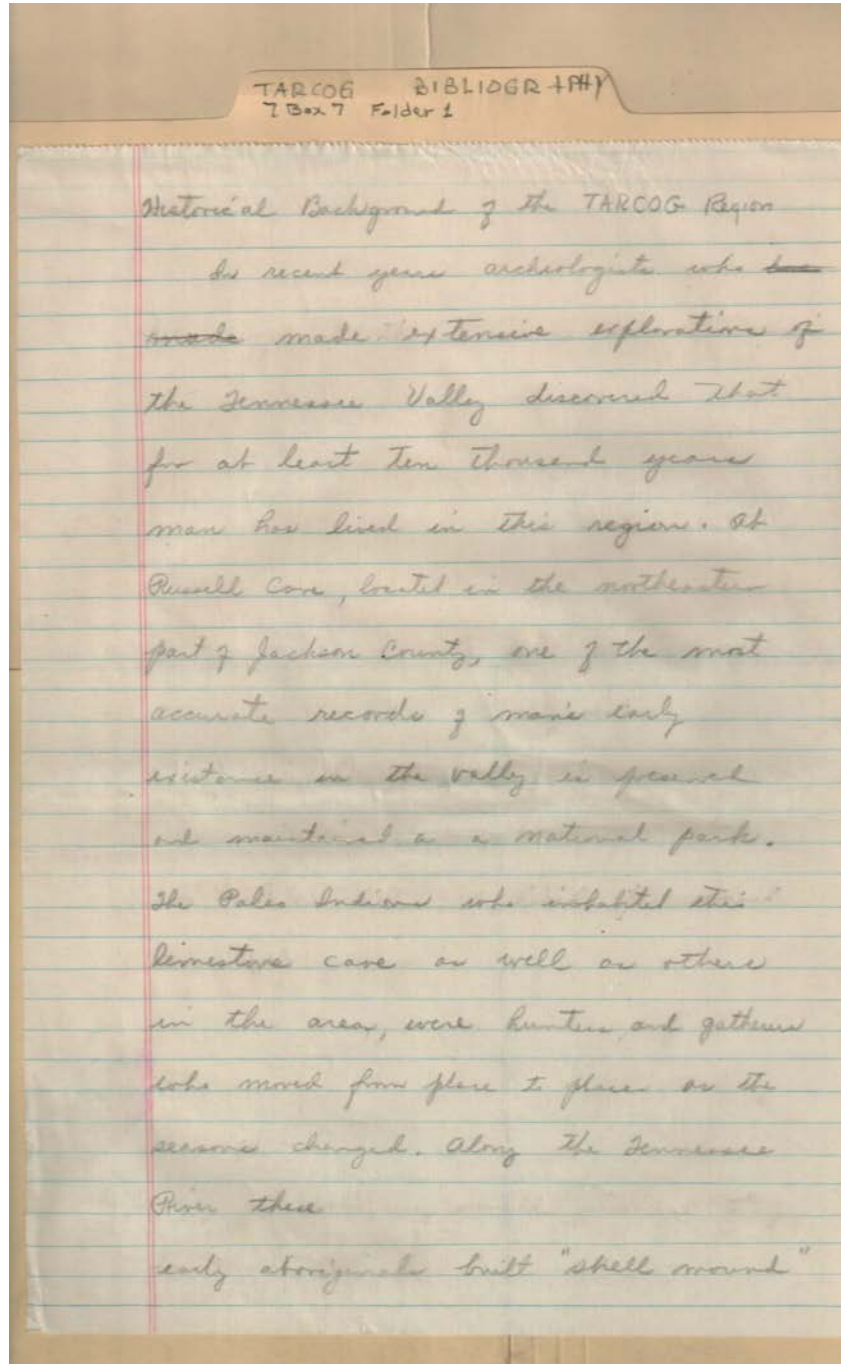 TARCOG BIBLIOGRAPHY
7 Box 7 Folder 1
Historical Background of the TARCOG Region
In recent years archeologists who have
made made extensive explorations of
the Tennessee Valley discovered that
for at least ten thousand years
man has lived in this region. At
Russell Cave, located in the northeastern
part of Jackson County, one of the most
accurate records of man's early
existence in the valley is preserved
and maintained as a national park.
The Paleo Indians who inhabited this
limestone cave as well as others
in the area, were hunters and gatherers
who moved from place to place as the
seasons changed. Along the Tennessee
River these
early aboriginals built "shell mound"